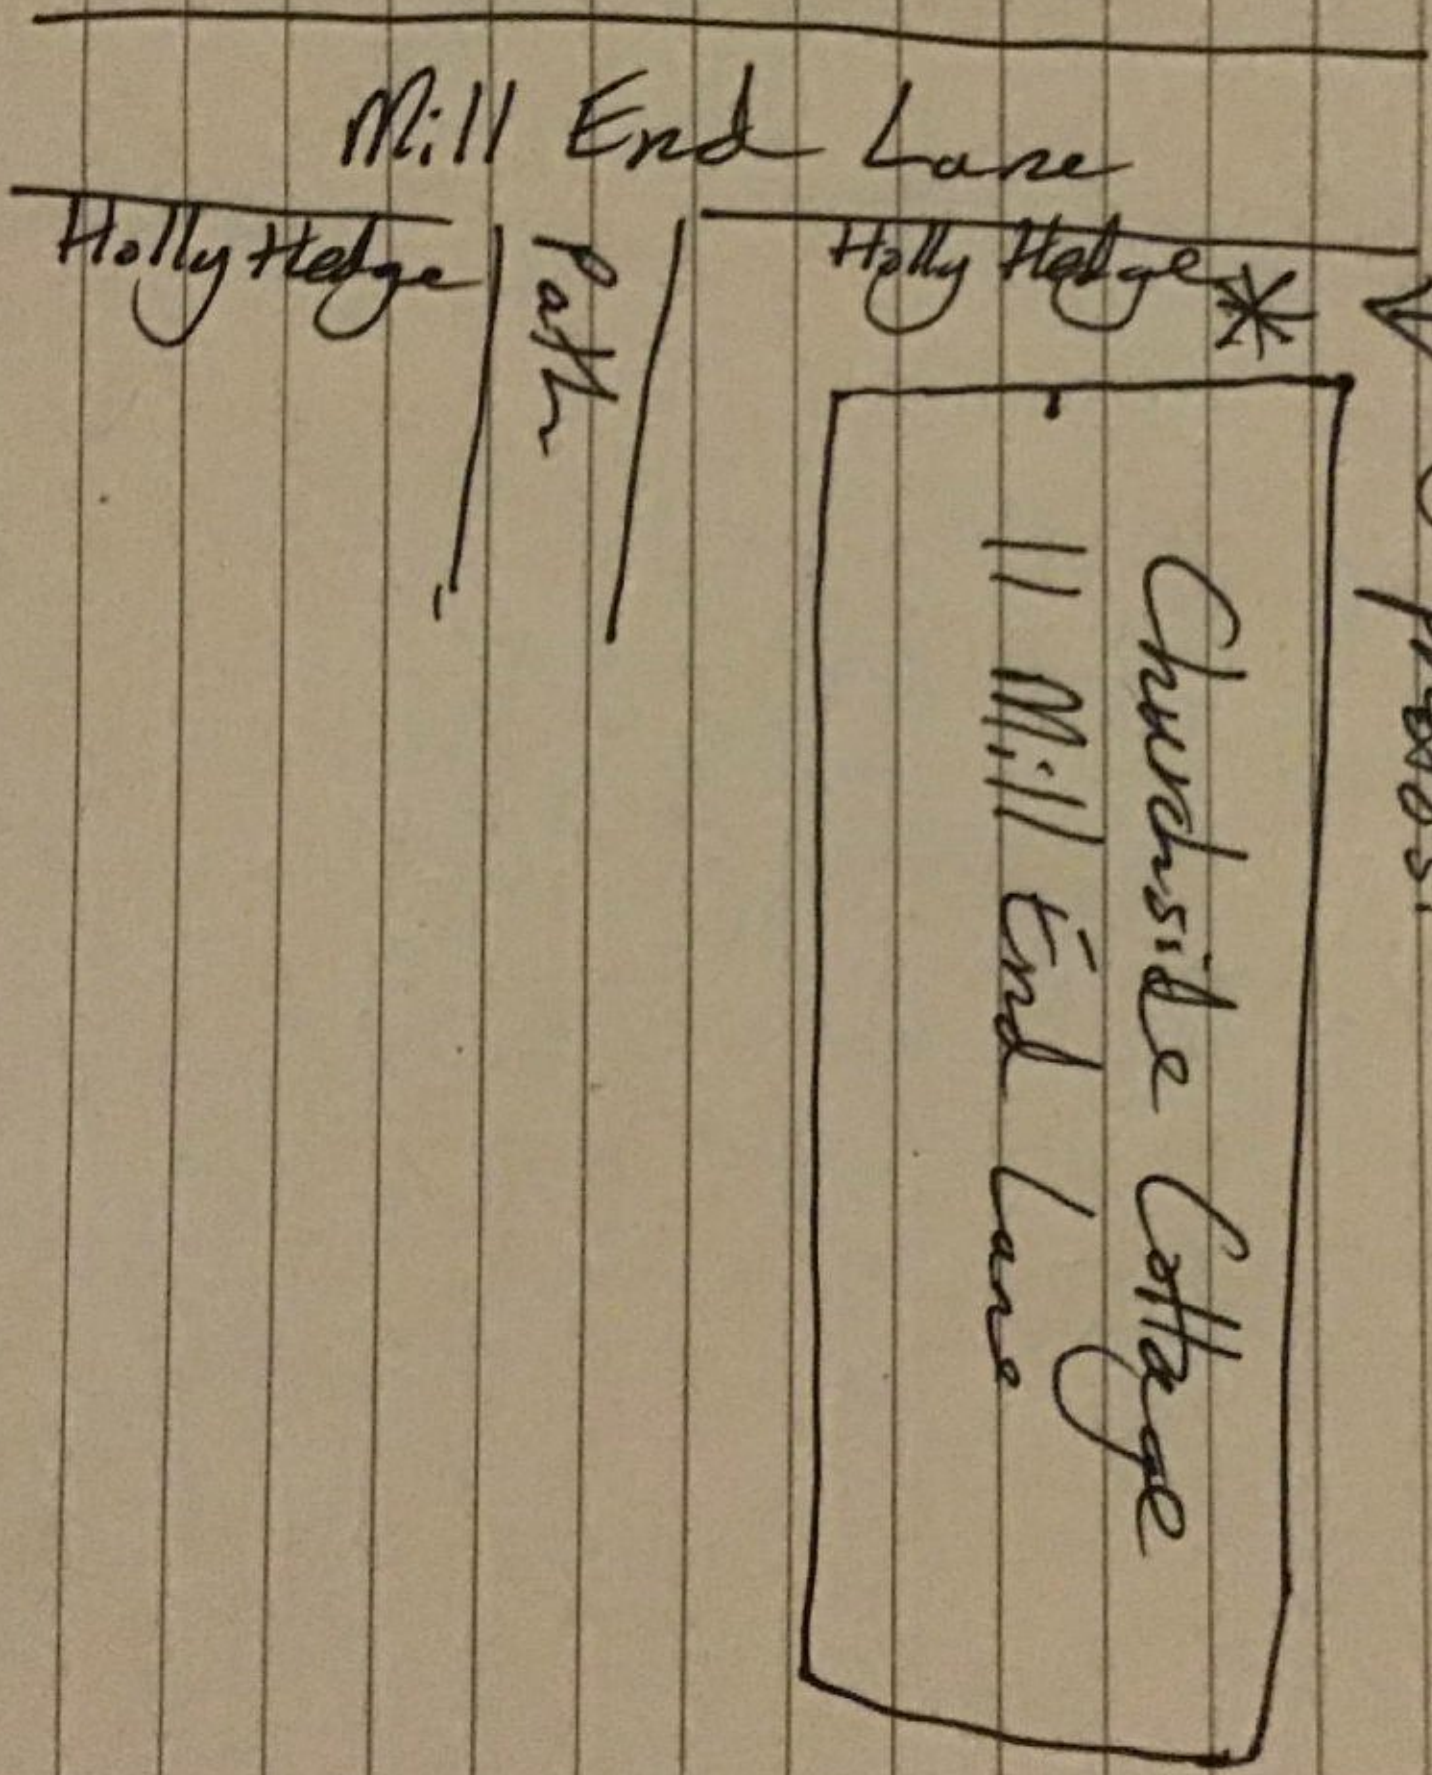 Mill End Lane
Holly Hedge
Path
Holly Hedge
Churchside Cottage
11 Mill End Lane